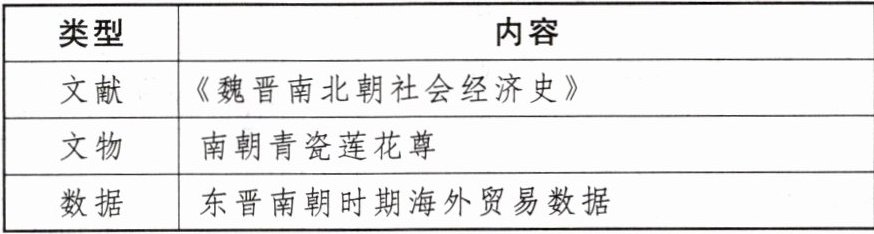 类型 内容
文献 《魏晋南北朝社会经济史》
文物 南朝青瓷莲花尊
数据 东晋南朝时期海外贸易数据